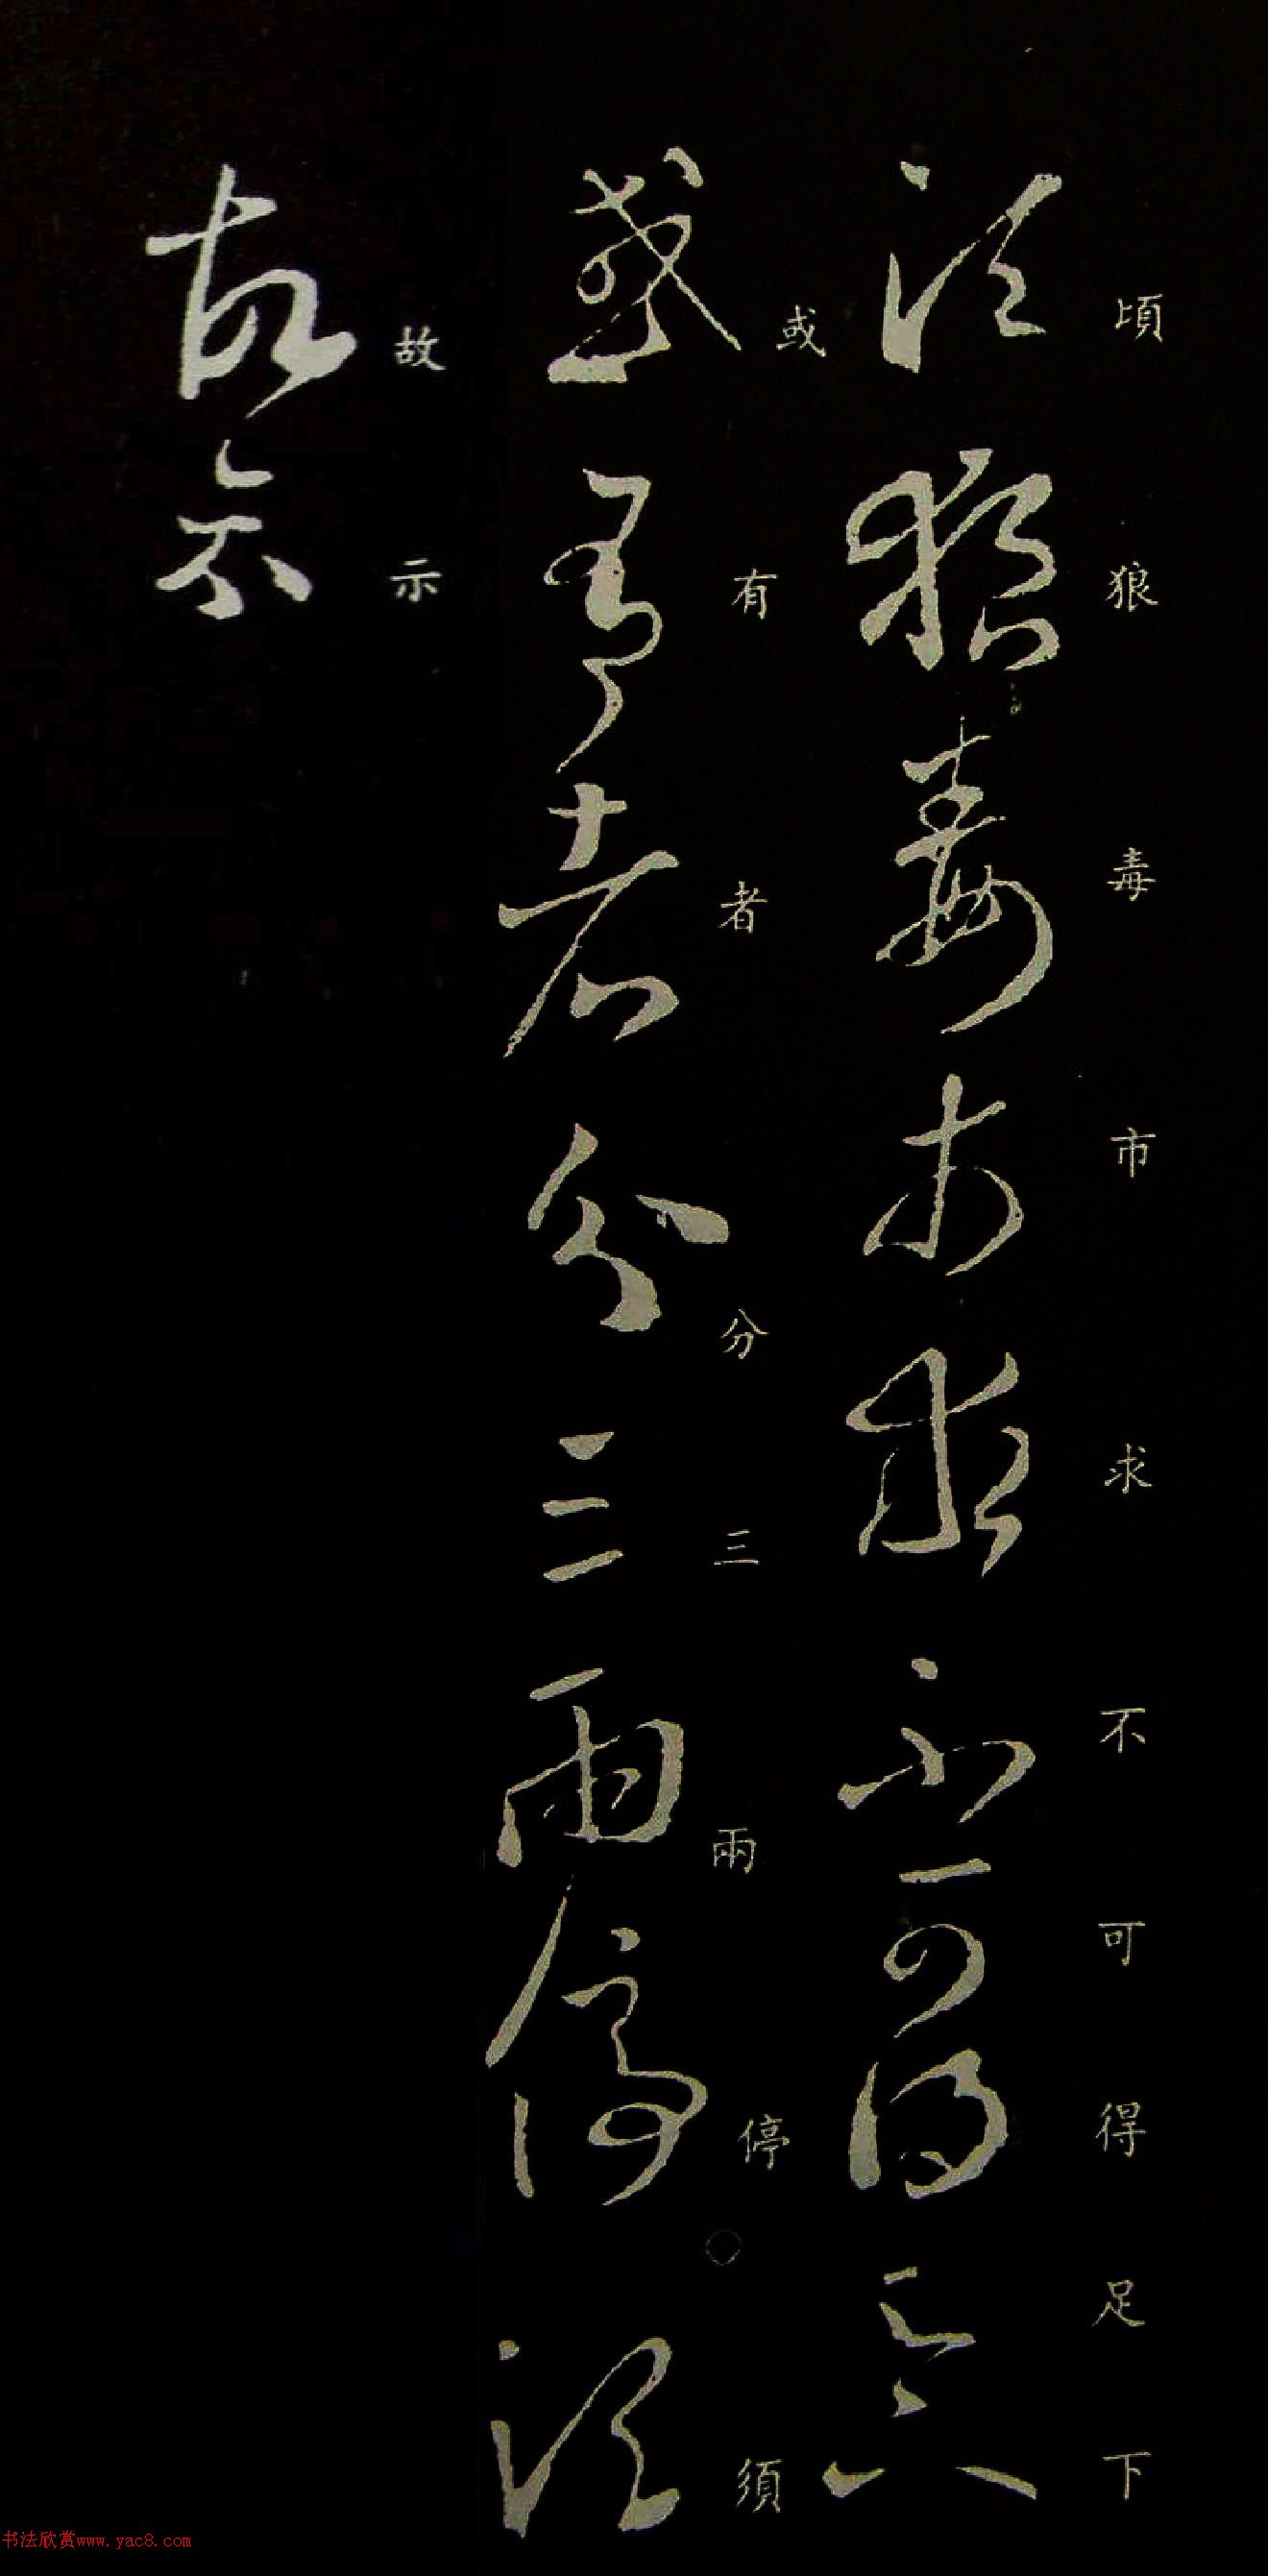 頃狼毒市求不可得足下
或有者分三兩停須
故示
书法欣赏www.yac8.com